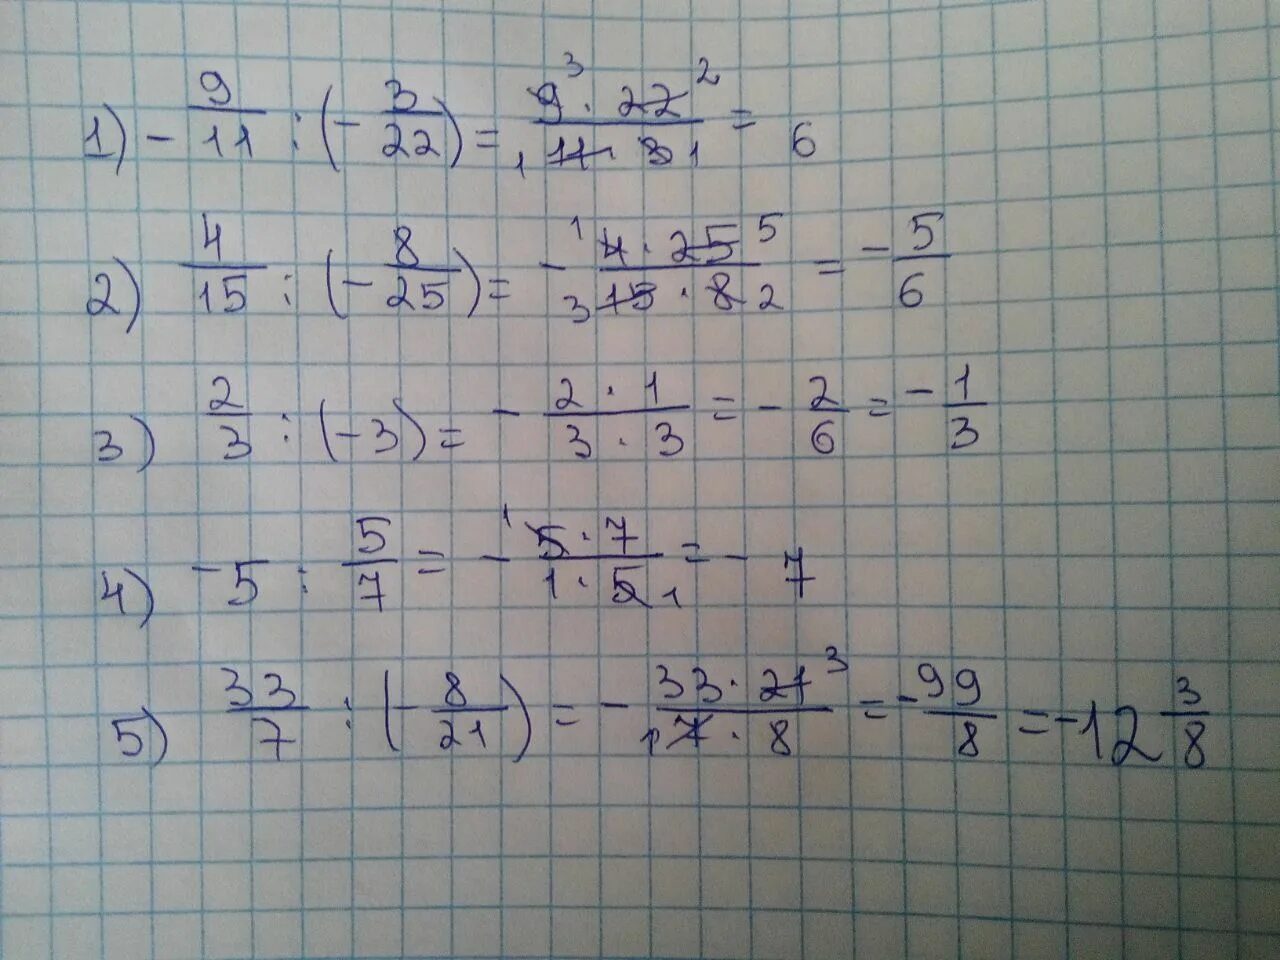 1) - 9/11 : (- 3/22) = 9³ · 22² / ₁11 · 3₁ = 6
2) 4/15 : (- 8/25) = - ¹4 · 25⁵ / ₃15 · 8₂ = - 5/6
3) 2/3 : (-3) = - 2 · 1 / 3 · 3 = - 2/6 = - 1/3
4) -5 : 5/7 = - ¹5 · 7 / 1 · 5₁ = - 7
5) 33/7 : (- 8/21) = - 33 · 21³ / ₁7 · 8 = - 99/8 = -12 3/8